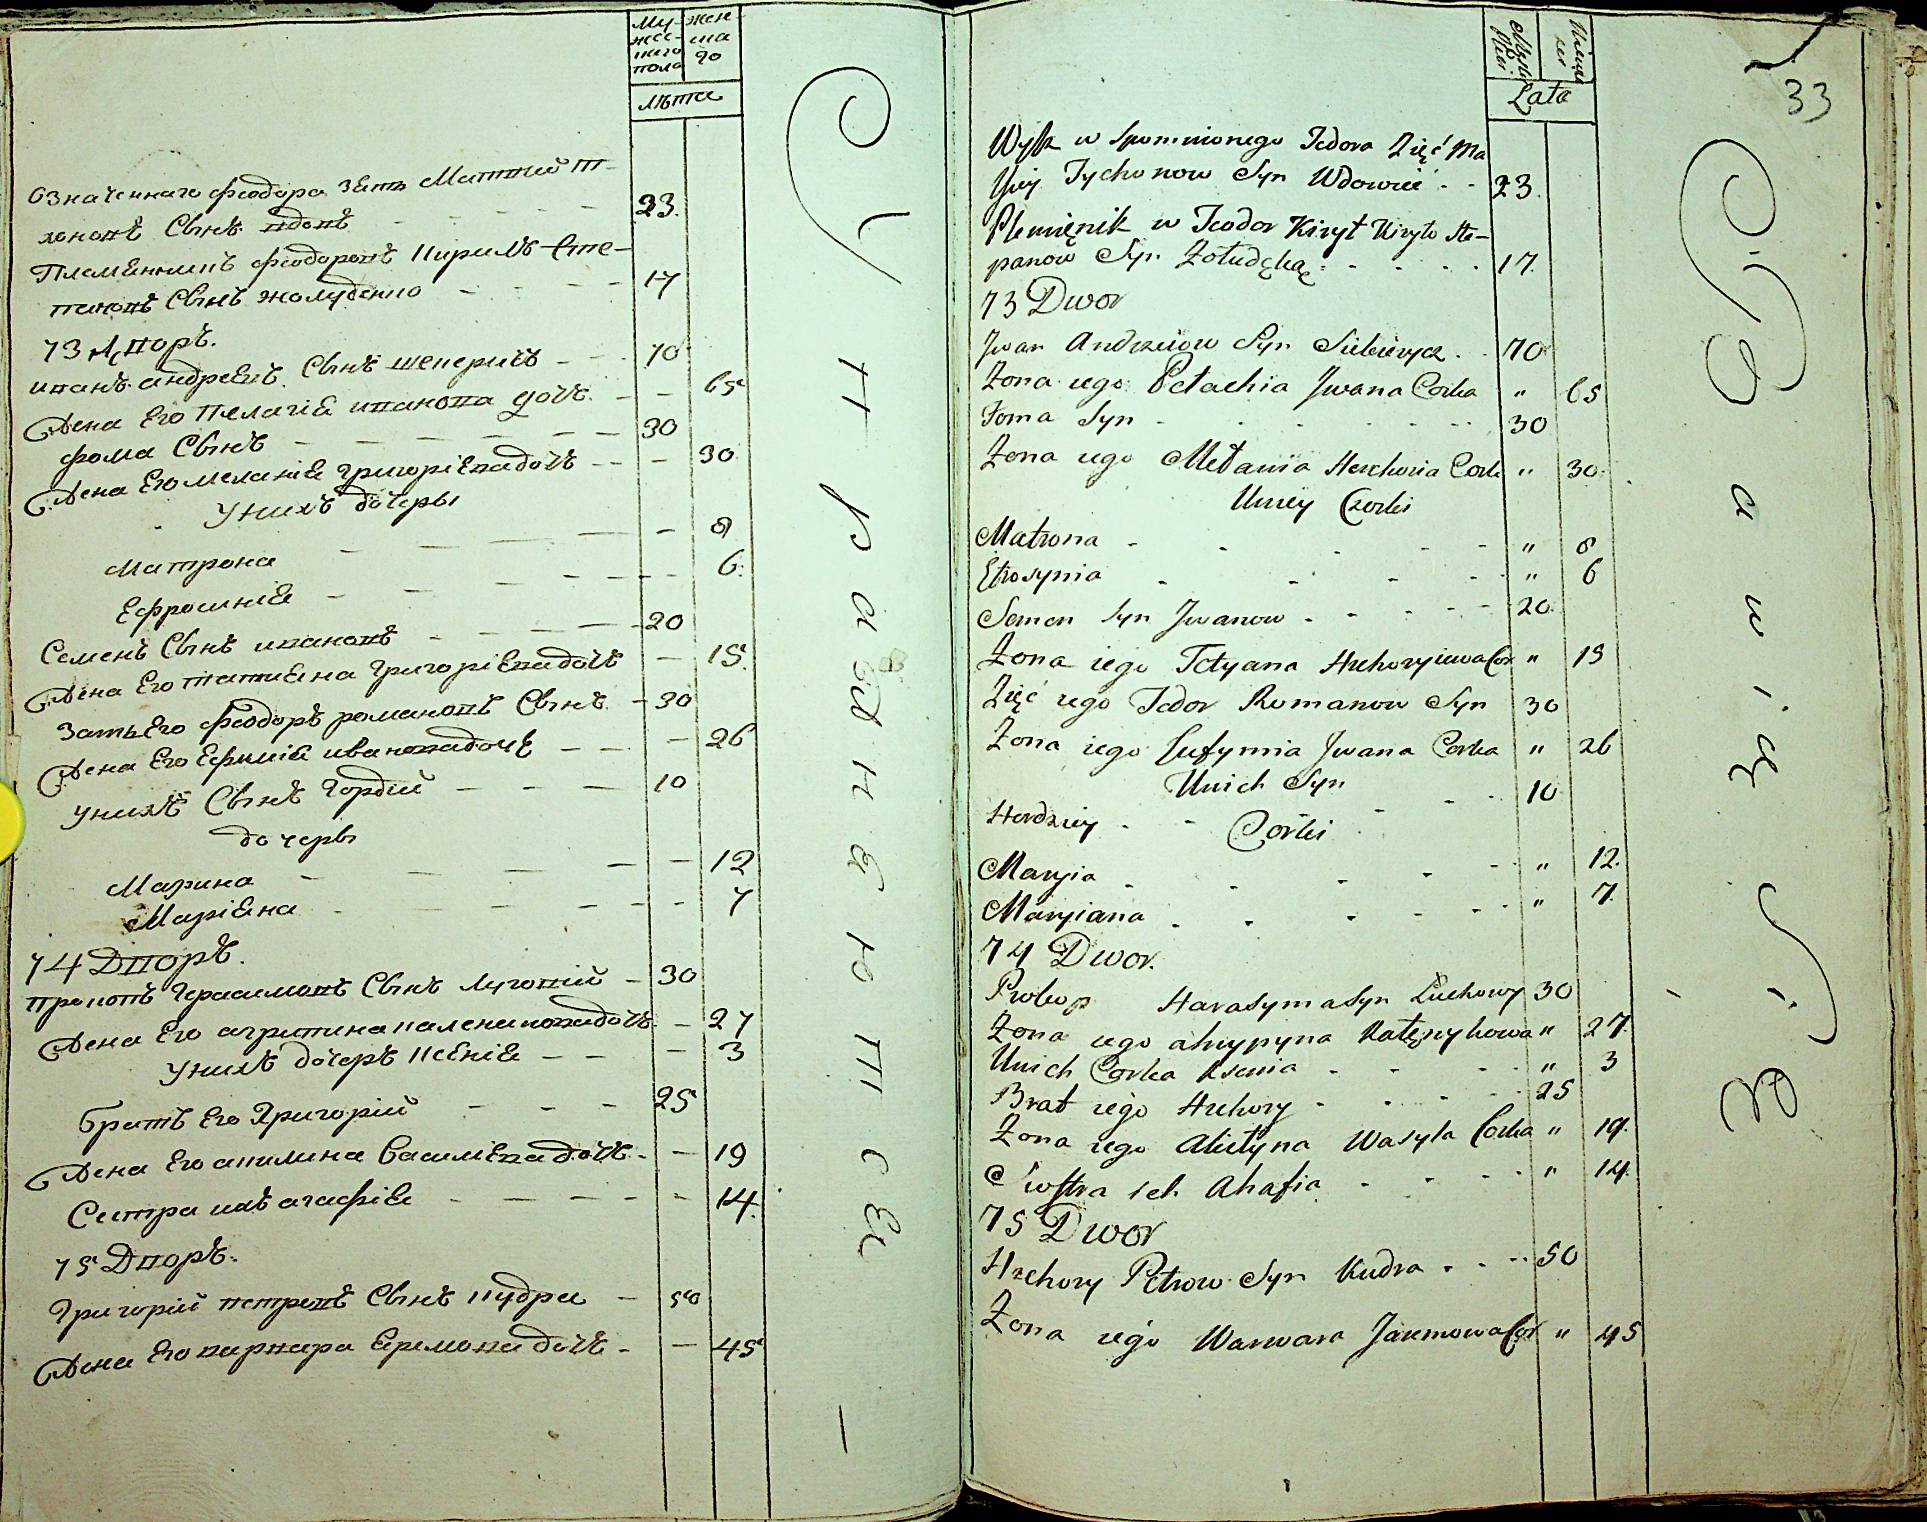 Му-
жес-
каго
пола
жен-
ска
го
лѣта
означеннаго феодора зять Матѳей Ти-
хоновъ Сынъ вдовъ 23.
Племенникъ феодоровъ Кирилъ Сте-
пановъ Сынъ жолуденко 17
73 Дворъ.
иванъ андреевъ Сынъ 70
Жена Его Пелагіѣ иванова дочь 65
фома Сынъ 30
Жена Его меланіѣ григоріева дочь 30
У нихъ дочеры
Матрона 8
Ефросиніѣ 6.
Семенъ Сынъ ивановъ 20
Жена Его татиѣна григоріева дочь 15.
Зать Его феодоръ романовъ Сынъ 30
Жена Его Ефиміѣ иванова дочь 26
У нихъ Сынъ Гордій 10
дочеры
Марина 12
Маріѣна 7
74 Дворъ.
прокопъ Герасимовъ Сынъ Луговій 30
Жена Его агрипина каленикова дочь 27
У нихъ дочеръ Ксеніѣ 3
братъ Его Григорій 25
Жена Его акилина Васильева дочь 19
Сестра ихъ агафіѣ 14.
75 Дворъ.
Григорій петровъ Сынъ кудра 50
Жена Его варвара Еремова дочь 45
У праздне ю т с Е
33
Lata
Wyż w spomnionego Fedora Zięć Ma
fiey Tychonow Syn Wdowiec 23.
Plemięnik w Feodor Kirył Kiryło Ste-
panow Syn Zołudęko 17.
73 Dwor
Jwan Andrziiow Syn 70
Zona iego Pełachia Jwana Corka " 65
Foma Syn 30
Zona iego Mełania Hrehoria Cork " 30.
Uniey Czorki
Matrona " 8
Efrosynia " 6
Semen Syn Jwanow 20.
Zona iego Tetyana Hrehoryiewa Cor " 15
Zięć iego Fedor Romanow Syn 30
Zona iego Eufymia Jwana Corka " 26
Unich Syn
Hordziey 10
Corki
Maryia " 12.
Maryiana " 7.
74 Dwor.
Prokop Harasyma Syn Łuchowy 30
Zona iego ahrypyna Kałęnykowa " 27.
Unich Corka Ksenia " 3
Brat iego Hrehory 25
Zona iego Akiłyna Wasyla Corka " 19.
Siostra ich Ahafia " 14.
75 Dwor
Hrehory Petrow Syn Kudra 50
Zona iego Warwara Jaremowa Cor " 45